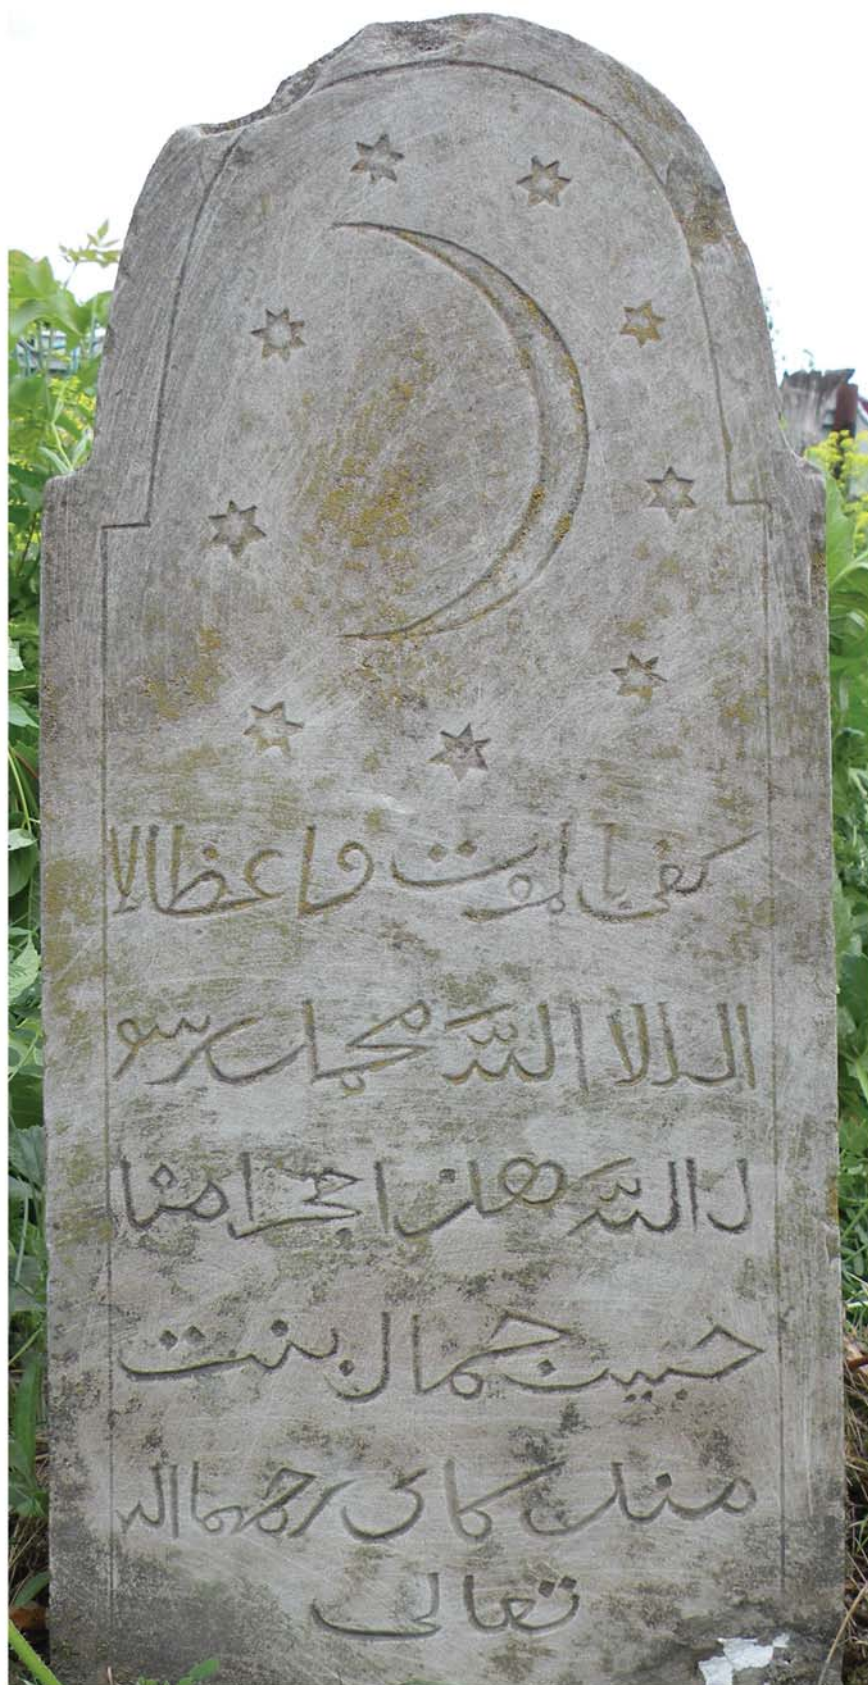 كفى بالموت واعظا لا
اله الا الله محمد رسو
ل الله هذا حجر اهنا
حبيب جمال بنت
منك كاى رحمها الله
تعالى